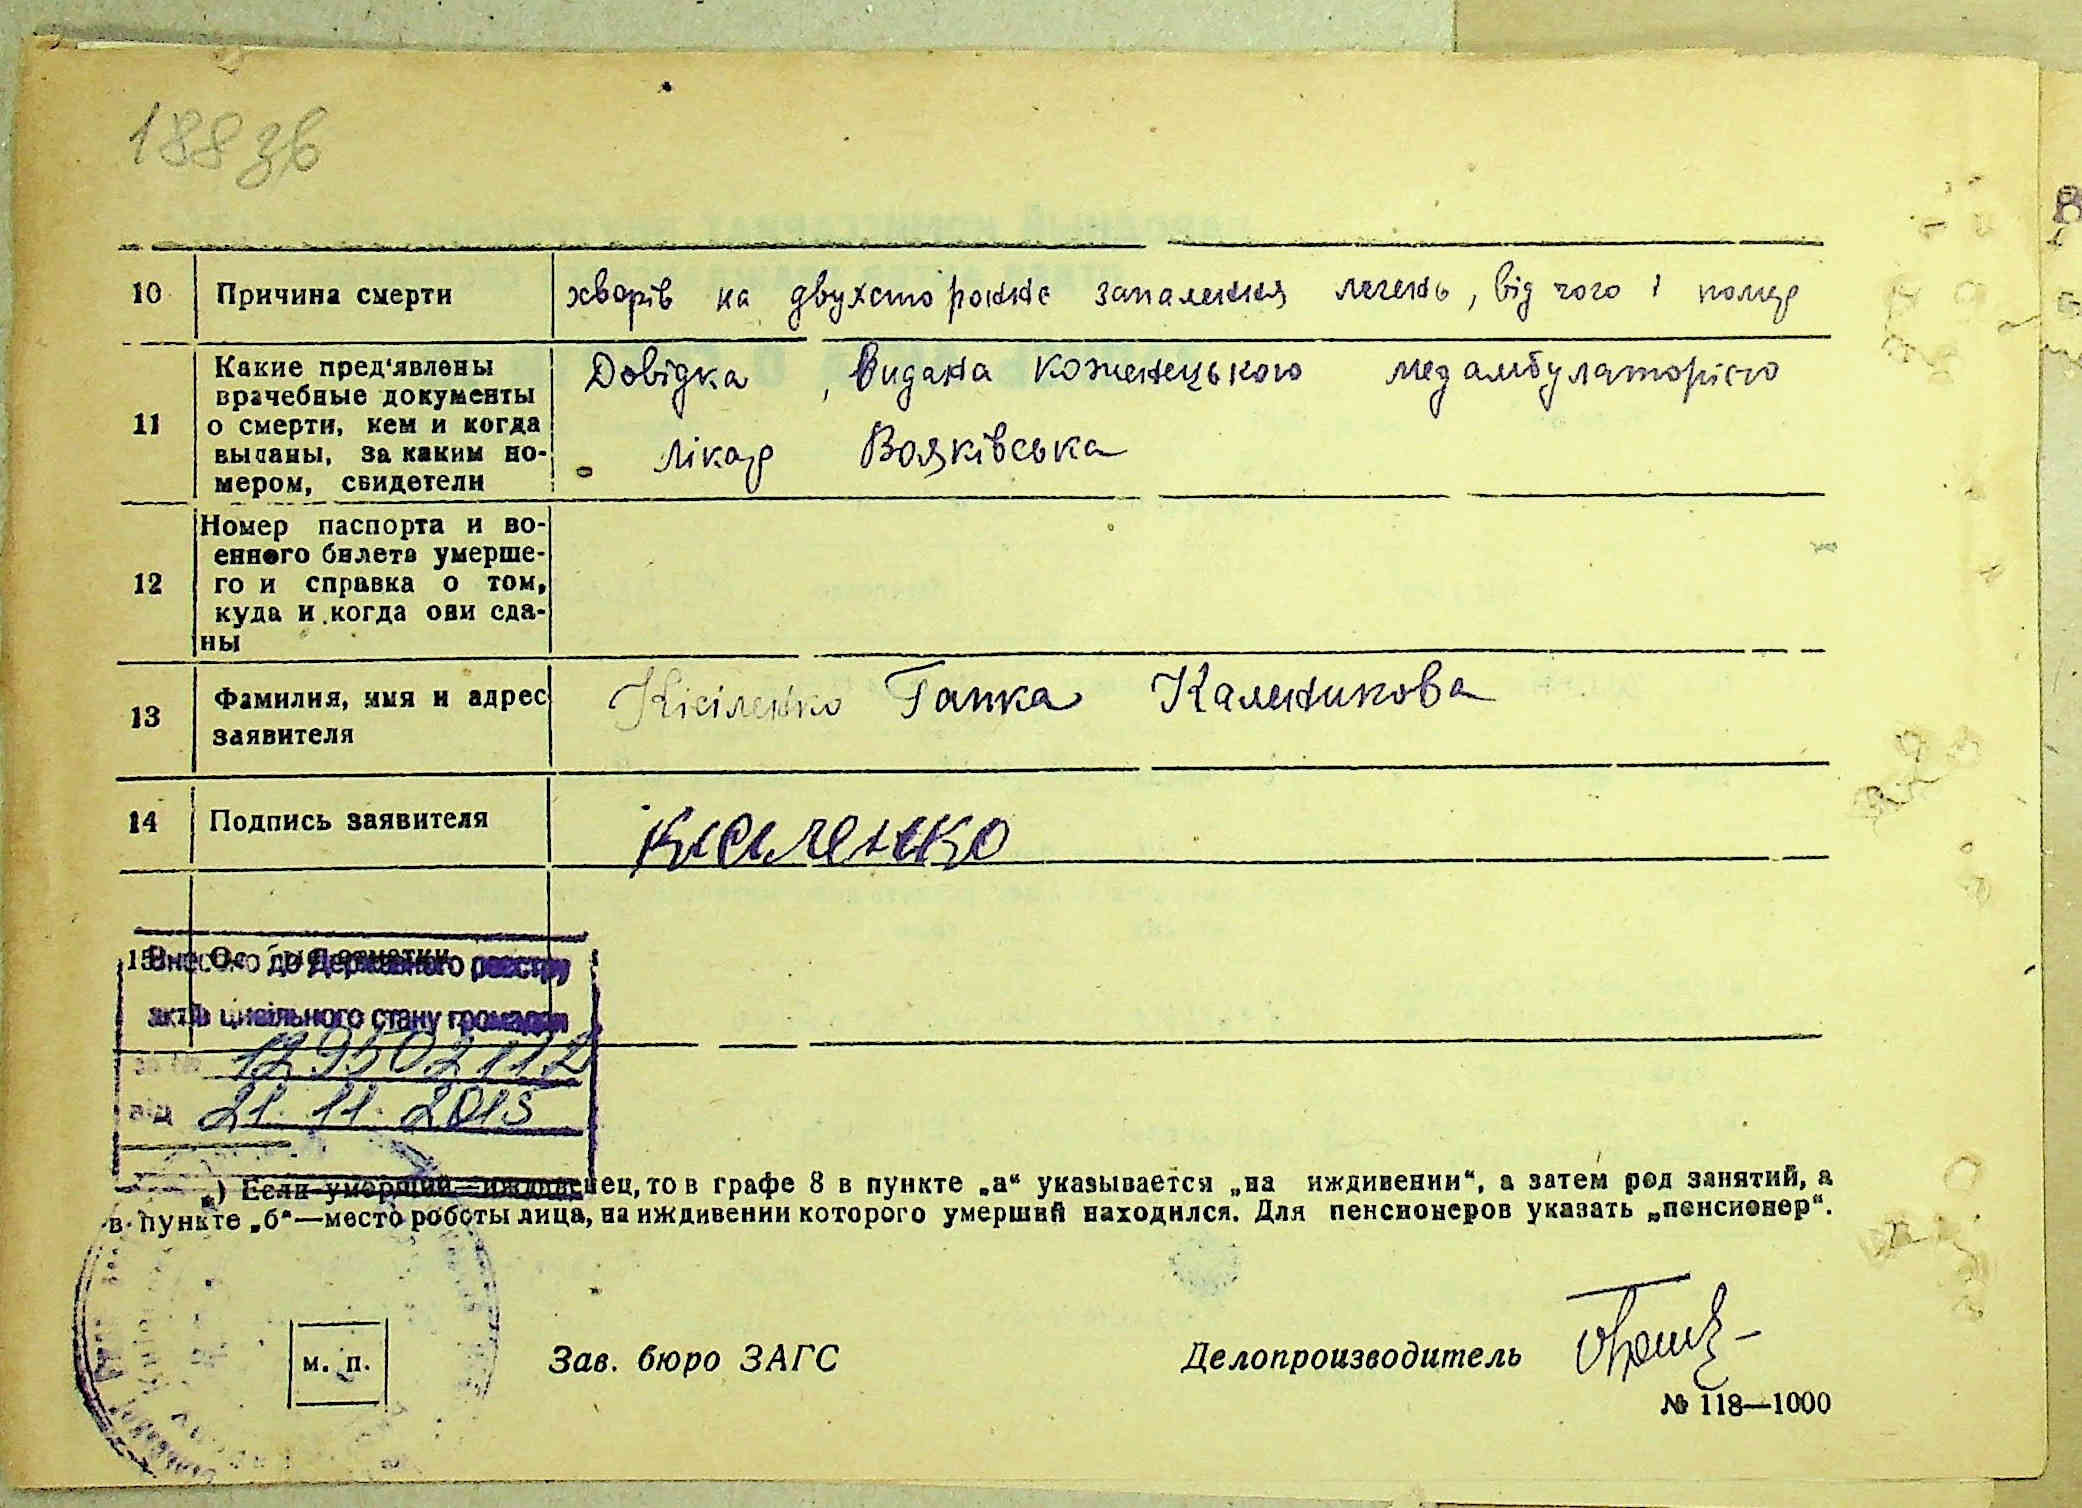 188 зв
10 Причина смерти хворів на двухстороннє запалення легень, від чого і помер
11 Какие пред'явлены
врачебные документы
о смерти, кем и когда
выданы, за каким но-
мером, свидетели
Довідка, видана коженецького медамбулаторією
лікар Вояківська
12 Номер паспорта и во-
енного билета умерше-
го и справка о том,
куда и когда они сда-
ны
13 Фамилия, имя и адрес
заявителя
Кісіленко Гапка Каленикова
14 Подпись заявителя Кисиленко
15 Особые отметки
Внесено до Державного реєстру
актів цивільного стану громадян
за № 129502112
від 21.11.2015
*) Если умерший—иждивенец, то в графе 8 в пункте „а“ указывается „на иждивении“, а затем род занятий, а
в пункте „б“—место роботы лица, на иждивении которого умерший находился. Для пенсионеров указать „пенсионер“.
м. п. Зав. бюро ЗАГС Делопроизводитель
№ 118—1000